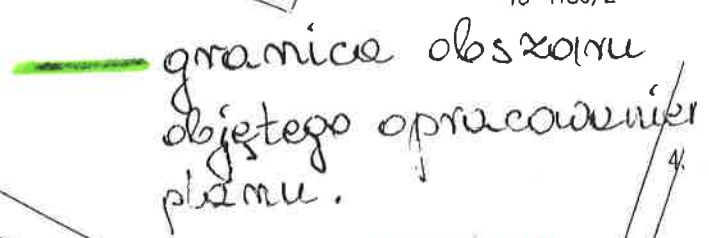 granica obszaru
objętego opracowaniem
planu.